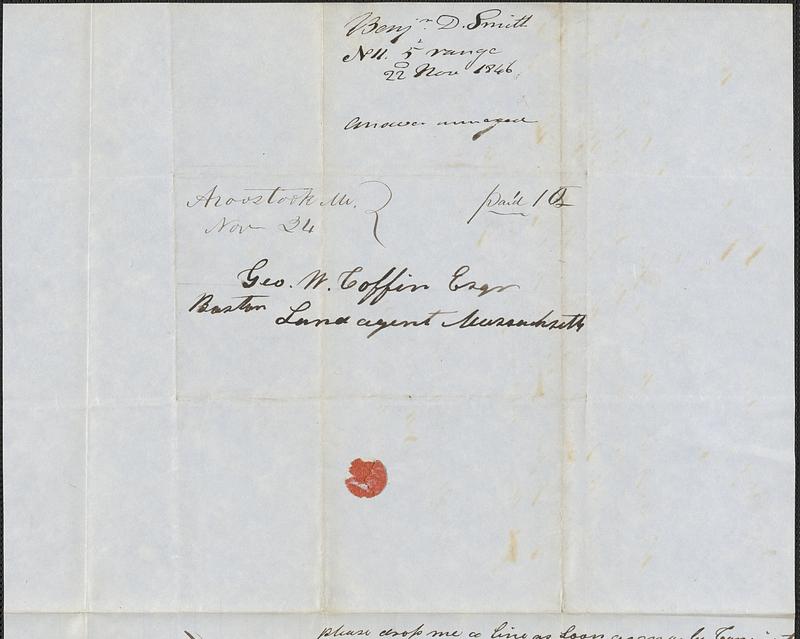 Benjn. D. Smith
N 11. 5 range
22 Nov 1846
Answer
Aroostook Me.
Nov 24
paid 10
Geo. W. Coffin Esqr
Boston
Land agent Massachsetts
please drop me a line as soon as